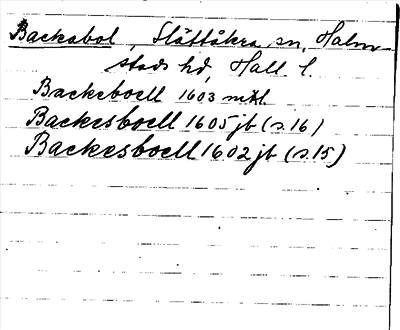 Backabol, Slättåkra sn, Halm-
stads hd, Hall. l.
Backeboell 1603 mtl.
Backesboell 1605 jb (s. 16)
Backesboell 1602 jb (s. 15)